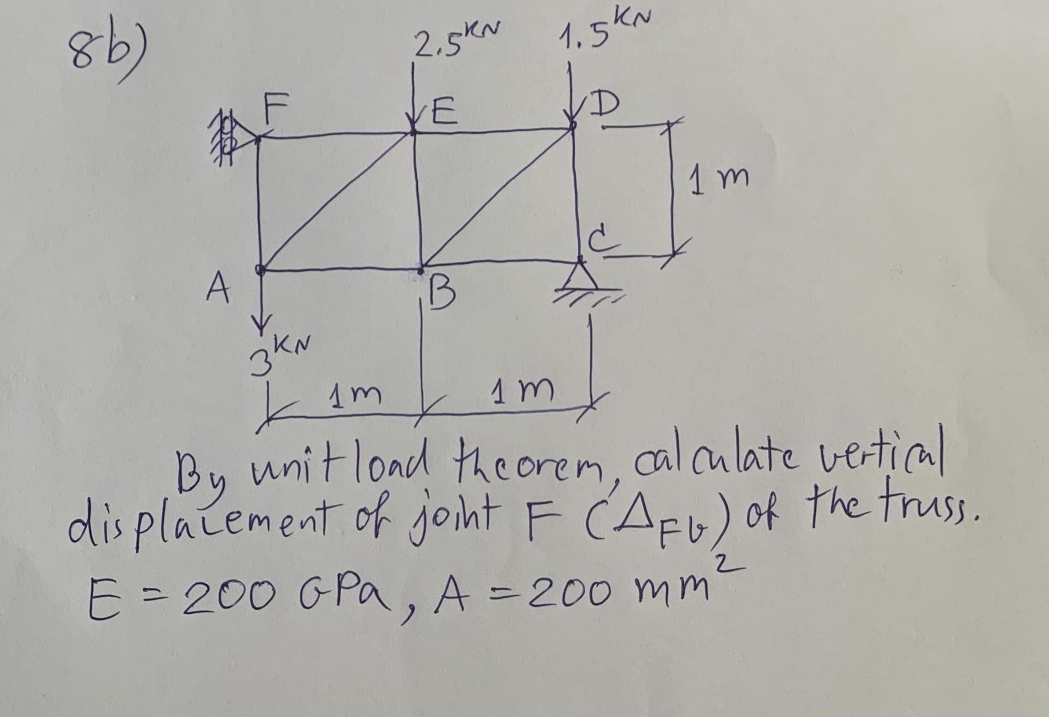 8b)
2.5KN
1.5KN
F
E
D
1 m
C
A
B
3KN
1m
1m
By unit load theorem, calculate vertical
displacement of joint F (ΔFv) of the truss.
E = 200 GPa, A = 200 mm²